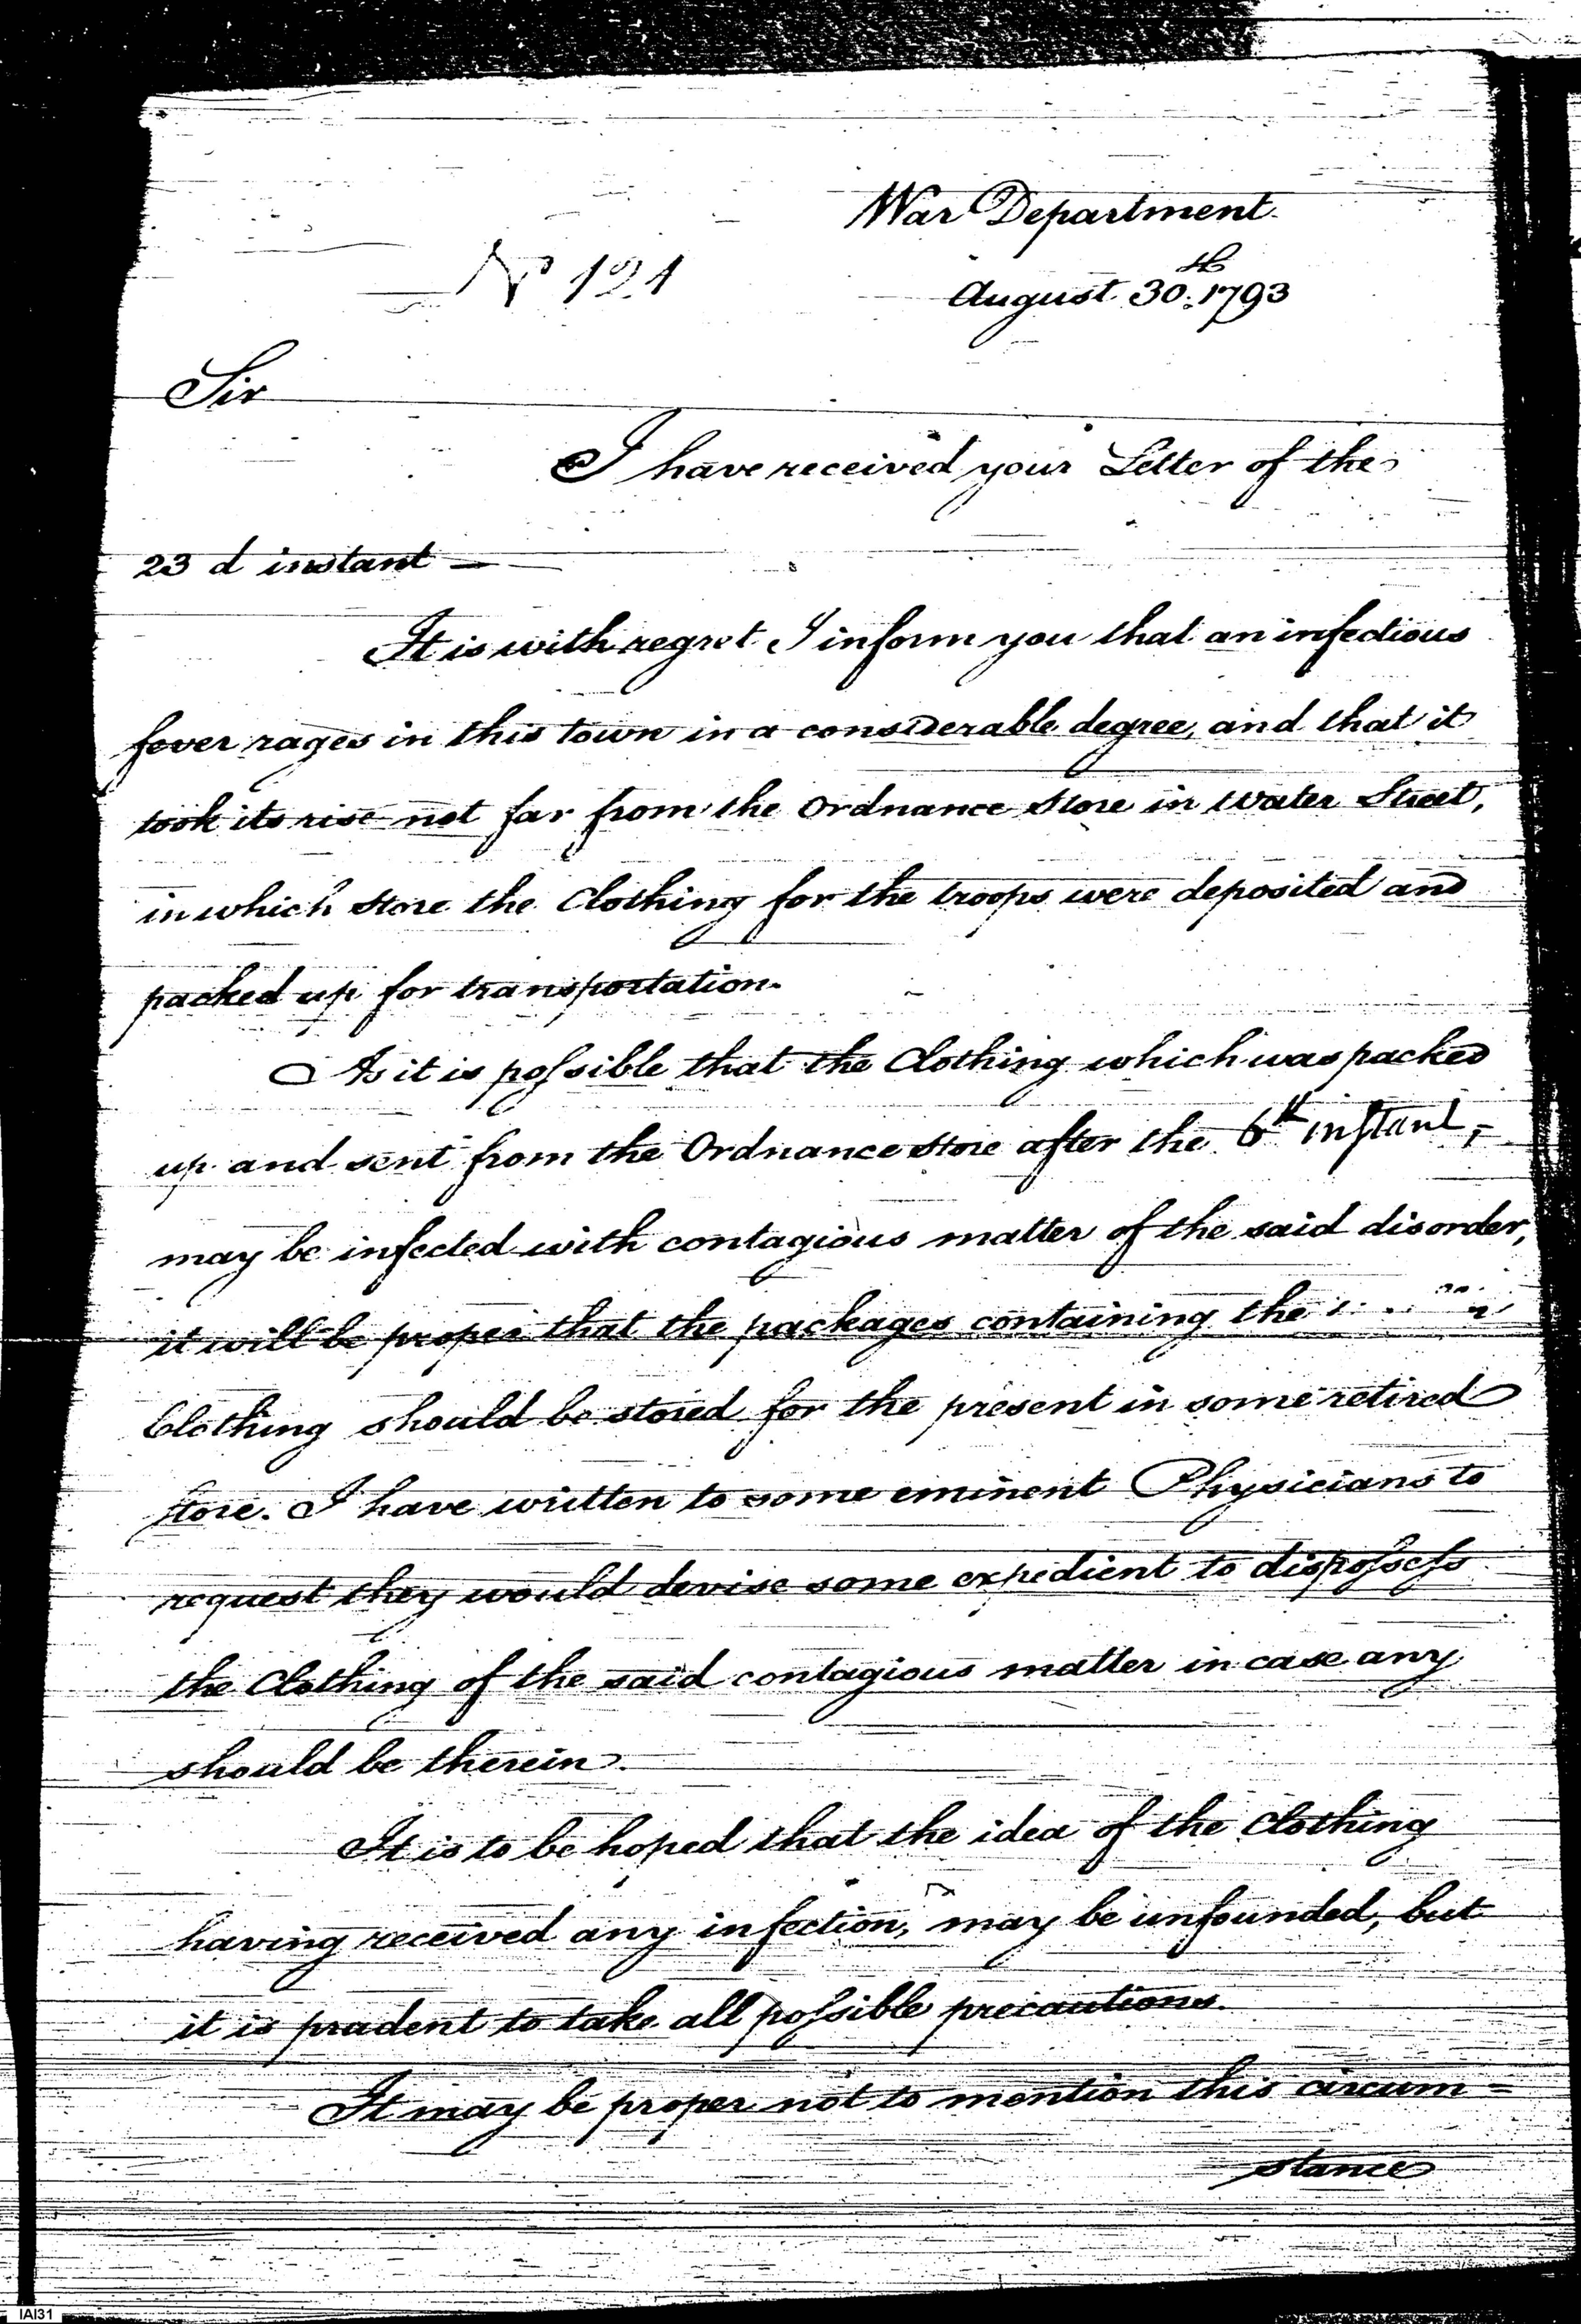 War Department.
No 121
August 30th: 1793
Sir
I have received your Letter of the
23 d instant —
It is with regret I inform you that an infectious
fever rages in this town in a considerable degree, and that it
took its rise not far from the Ordnance Store in Water Street,
in which Store the Clothing for the troops were deposited and
packed up for transportation.
As it is possible that the Clothing which was packed
up and sent from the Ordnance Store after the 6th instant,
may be infected with contagious matter of the said disorder,
it will be proper that the packages containing the
Clothing should be stored for the present in some retired
Store. I have written to some eminent Physicians to
request they would devise some expedient to dispossess
the Clothing of the said contagious matter in case any
should be therein.
It is to be hoped that the idea of the Clothing
having received any infection, may be unfounded, but
it is prudent to take all possible precautions.
It may be proper not to mention this circum=
stance
IAI31